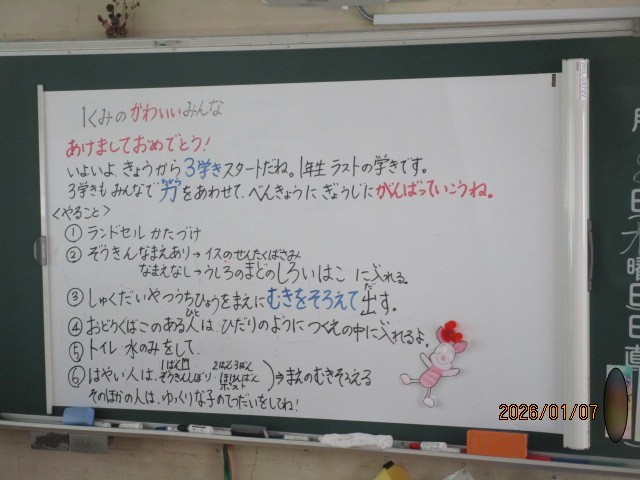 1くみのかわいいみんな
あけましておめでとう!
いよいよ、きょうから3学きスタートだね。1年生 ラストの学きです。
3学きも みんなで 力をあわせて、べんきょうに ぎょうじに がんばっていこうね。
<やること>
① ランドセル かたづけ
② ぞうきんなまえあり→イスのせんたくばさみ
なまえなし→うしろのまどのしろいはこ に入れる。
③ しゅくだいやつうちひょうをまえにむきをそろえて出す。
④ おどうぐばこのある人は、ひだりのように つくえの中に入れるよ。
⑤ トイレ 水のみをして、
⑥ はやい人は、
ぞうきんしぼり・
→まえのむきそろえる
そのほかの人は、ゆっくりな子のてつだいをしてね!
曜日
日直
2026/01/07